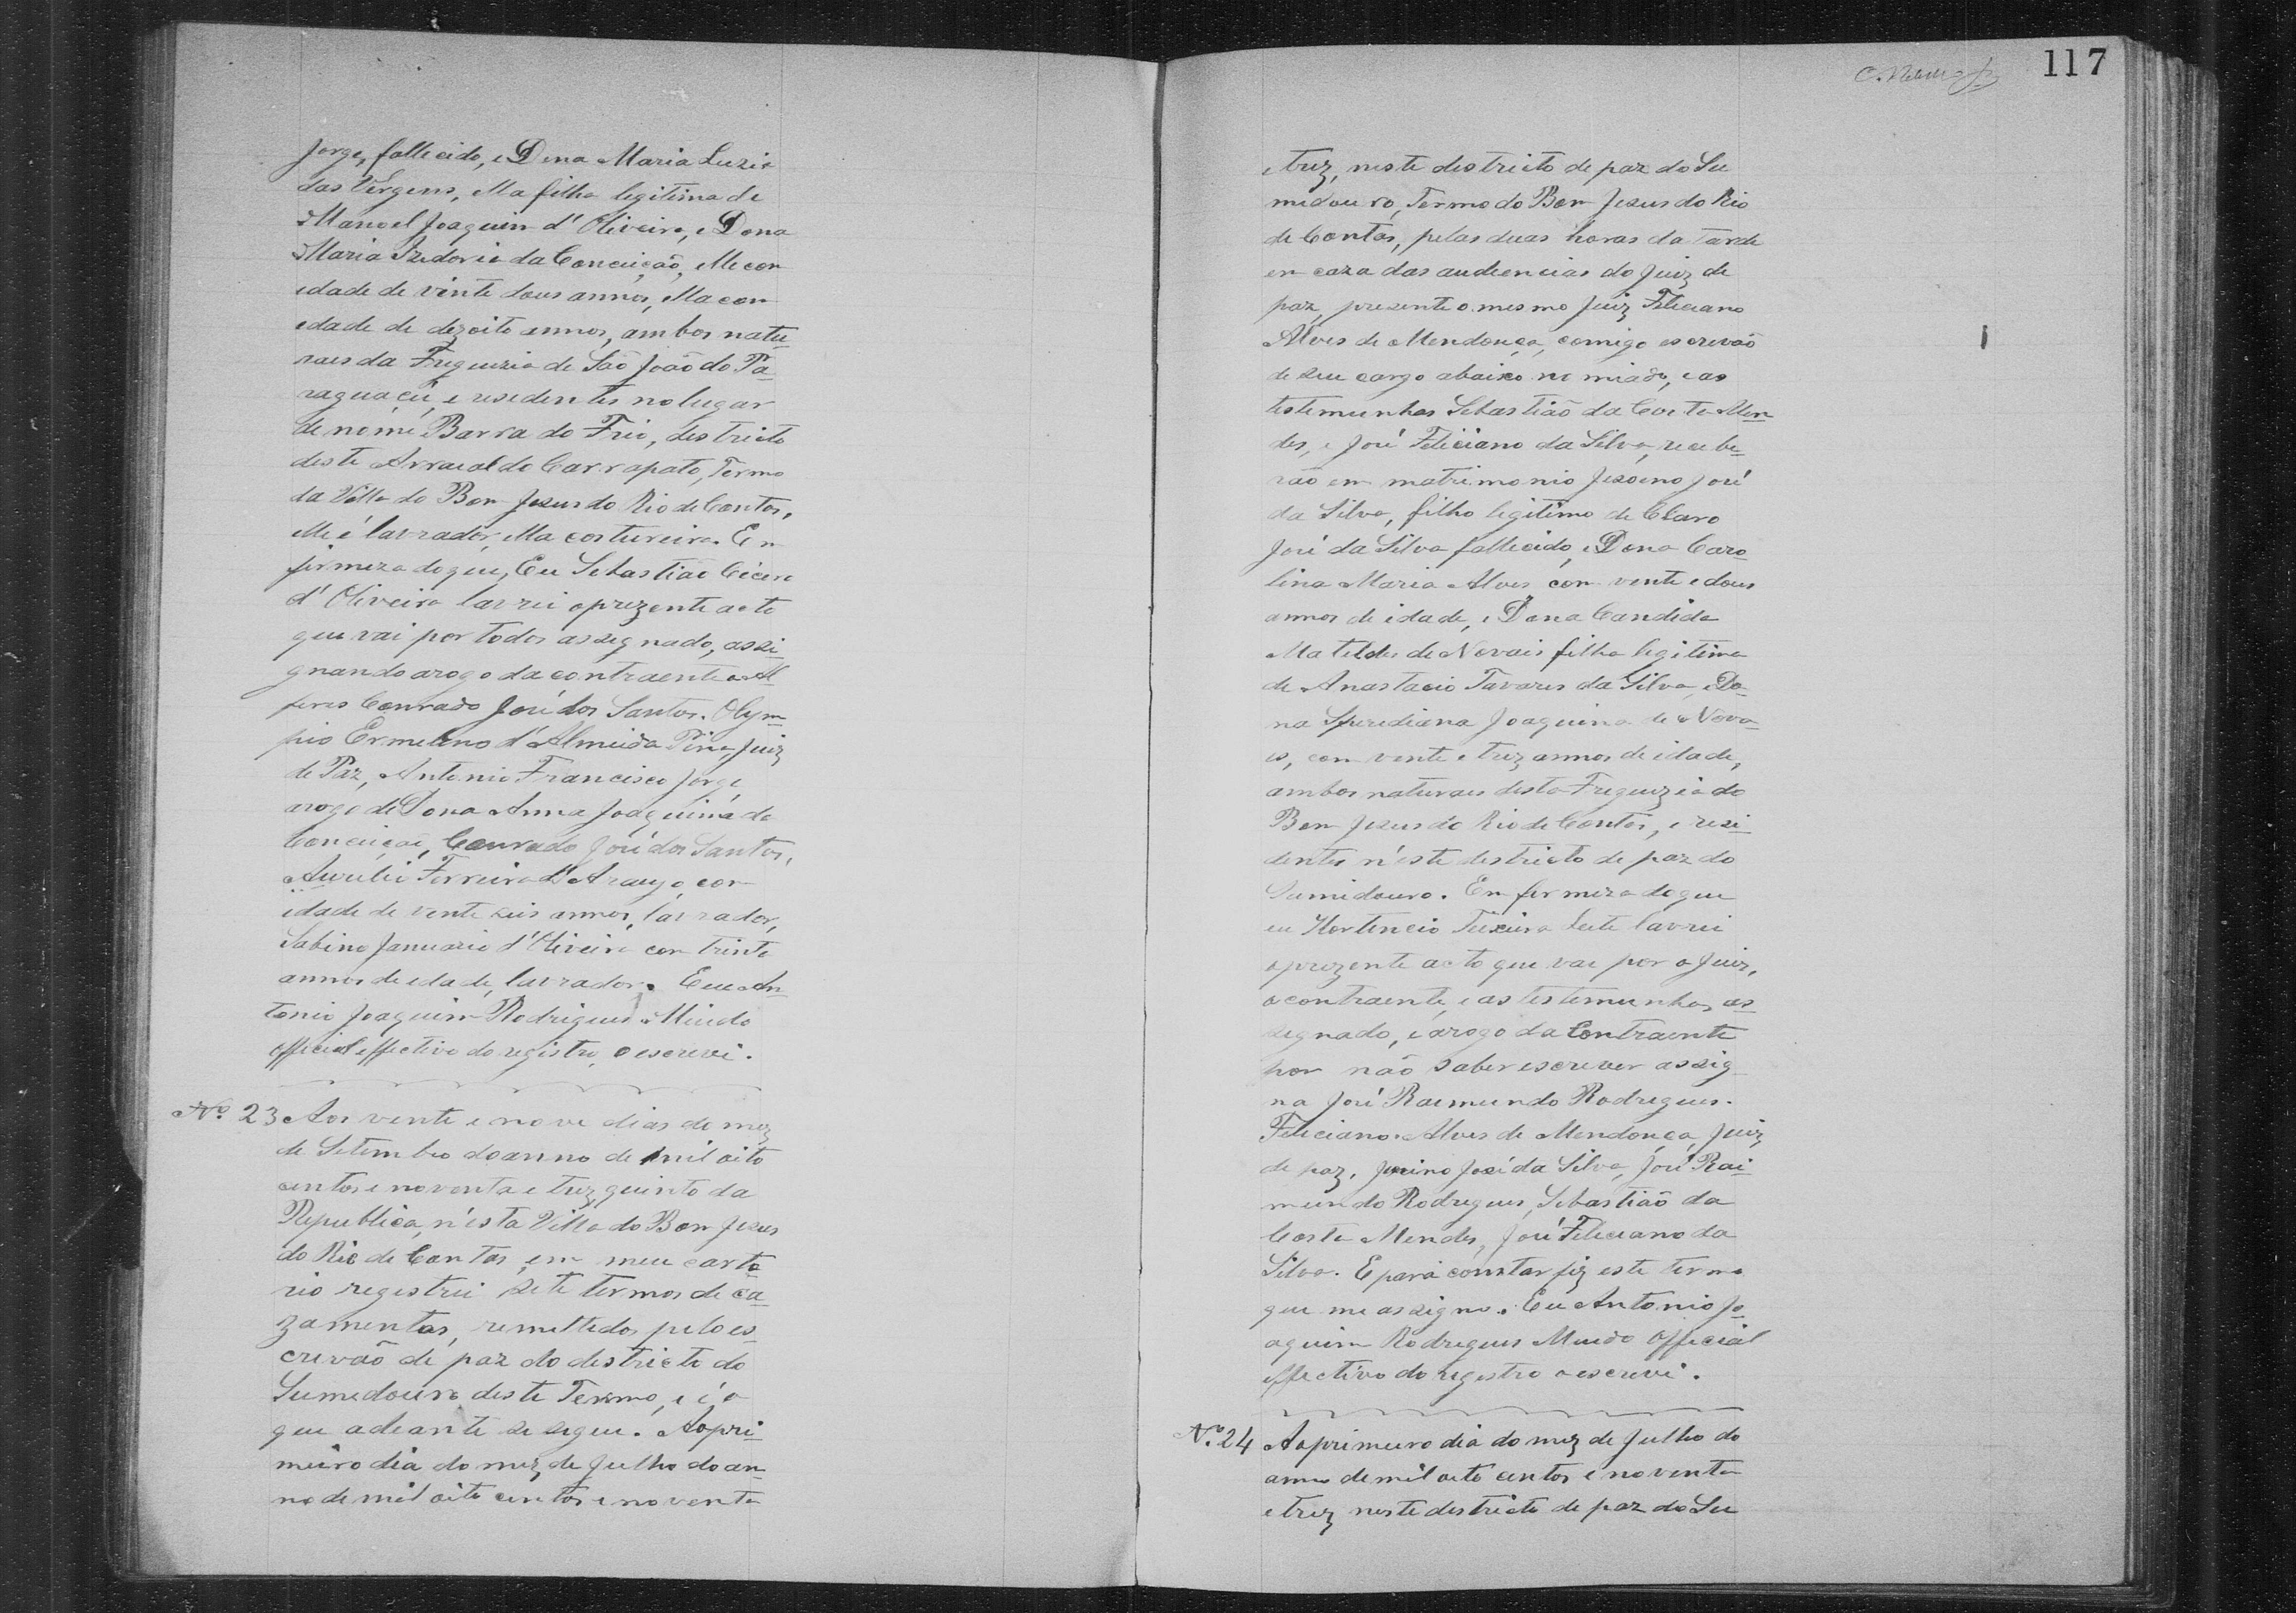 Jorge, fallecido, e Dona Maria Luzia
das Virgens, Ella filha legitima de
Manoel Joaquim d'Oliveira, e Dona
Maria Izidoria da Conceição, Elle com
idade de vinte dous annos, Ella com
edade de dezoito annos, ambos natu
raes da Freguezia de São João do Pa
raguaçú e residentes no lugar
de nome Barra do Frio, destricto
deste Arraial do Carrapato, Termo
da Villa do Bom Jesus do Rio de Contas,
elle é lavrador, ella costureira. Em
firmeza do que, Eu Sebastião Cicero
d'Oliveira lavrei o prezente acto
que vai por todos assegnado, assi
gnando arogo da contraente o Al
feres Conrado José dos Santos. Olym
pio Ermelino d'Almeida Pina, Juiz
de Paz, Antonio Francisco Jorge,
arogo de Dona Anna Joaquina da
Conceição, Conrado José dos Santos,
Aurelio Ferreira d'Araujo, com
idade de vente seis annos, lavrador,
Sabino Januario d'Oliveira com trinta
annos de edade, lavrador. Eu An
tonio Joaquim Rodrigues
official effectivo do registro o escrevi.
Nº 23 Aos vente e nove dias do mez
de Setembro do anno de mil oito
centos e noventa e trez, quinto da
Republica, n'esta Villa do Bom Jesus
do Rio de Contas, em meu carto
rio registrei sete termos de ca
zamentos, remettidos pelo es
crivão de paz do destricto do
Sumedouro deste Termo, e é o
que adeante se segue. Ao pri
meiro dia do mez de Julho do an
no de mil oito centos e noventa
117
e trez, neste destricto de paz do Su
midouro, Termo do Bom Jesus do Rio
de Contas, pelas duas horas da tarde
em caza das audiencias do Juiz de
paz, presente o mesmo Juiz Feliciano
Alves de Mendonça, comigo escrevão
de seu cargo abaixo nomiado, e as
testemunhas Sebastião da Costa Men
des, e José Feliciano da Silva, recebe
rão em matrimonio José
da Silva, filho legitimo de Claro
José da Silva fallecido, e Dona Caro
lina Maria Alves com vente e dous
annos de idade, e Dona Candida
Matildes de Novais filha legitima
de Anastacio Tavares da Silva, e Do
na Sperediana Joaquina de Nova
es, com vente e trez annos de idade,
ambos naturaes desta Freguezia do
Bom Jesus do Rio de Contas, e resi
dentes n'este destricto de paz do
Sumidouro. Em firmeza do que
eu Hortencio Teixeira Leite lavrei
o prezente acto que vae por o Juiz,
o contraente, e as testemunhas as
segnado, e arogo da Contraente
por não saber escrever assig
na José Raemundo Rodrigues.
Feliciano Alves de Mendonça, Juiz
de paz, José da Silva, José Rai
mundo Rodrigues, Sebastião da
Costa Mendes, José Feliciano da
Silva. E para constar fiz este termo
que me assigno. Eu Antonio Jo
aquim Rodrigues Official
effectivo do registro o escrevi.
Nº 24 Ao primeiro dia do mez de Julho do
anno de mil oito centos e noventa
e trez neste destricto de paz do Su